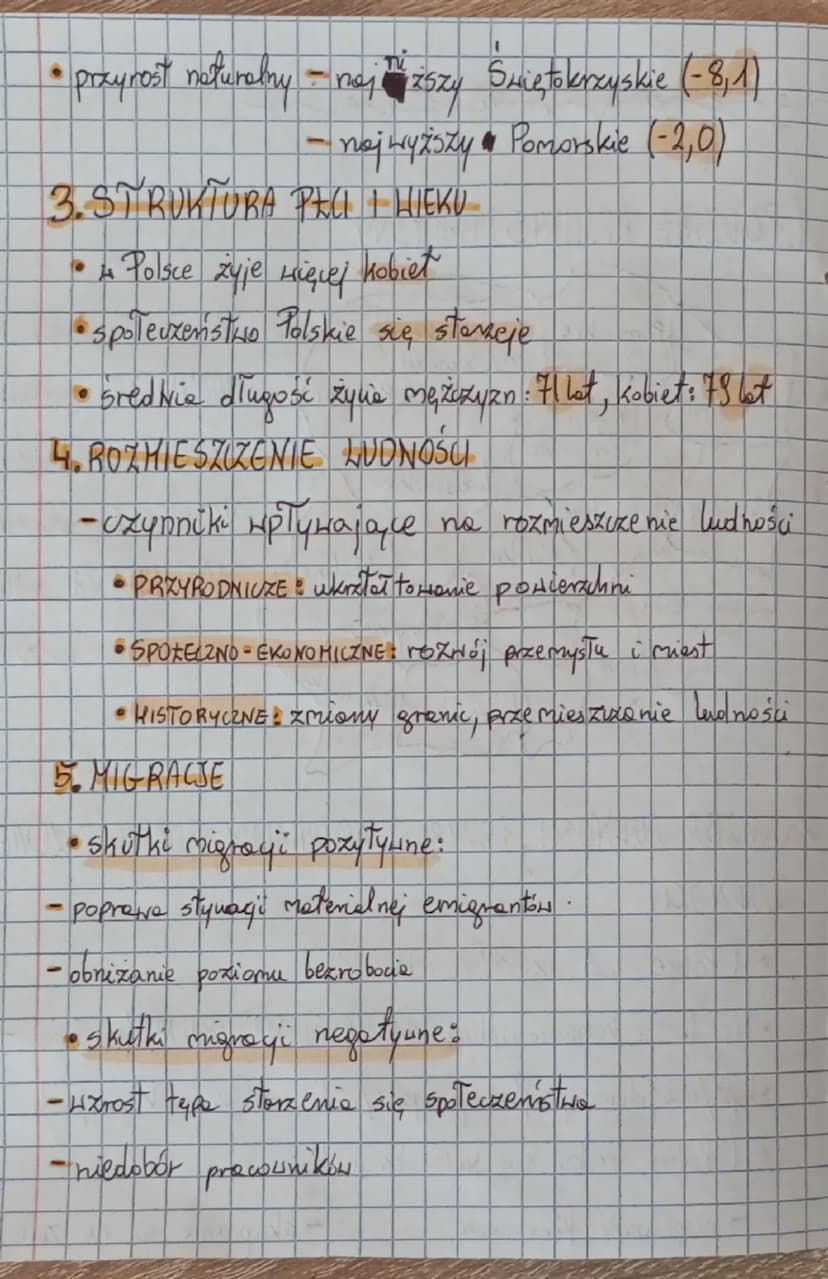 • przyrost naturalny - najniższy Świętokrzyskie (-8,1)
- najwyższy • Pomorskie (-2,0)
3. STRUKTURA PŁCI I WIEKU
• w Polsce żyje więcej kobiet
• społeczeństwo Polskie się starzeje
• średnia długość życia mężczyzn: 71 lat, kobiet: 79 lat
4. ROZMIESZCZENIE LUDNOŚCI
- czynniki wpływające na rozmieszczenie ludności
• PRZYRODNICZE: ukształtowanie powierzchni
• SPOŁECZNO-EKONOMICZNE: rozwój przemysłu i miast
• HISTORYCZNE: zmiany granic, przemieszczanie ludności
5. MIGRACJE
• skutki migracji pozytywne:
- poprawa stywacji materialnej emigrantów.
- obniżanie poziomu bezrobocia
• skutki migracji negatywne:
- wzrost tępa starzenia się społeczeństwa
- niedobór pracowników